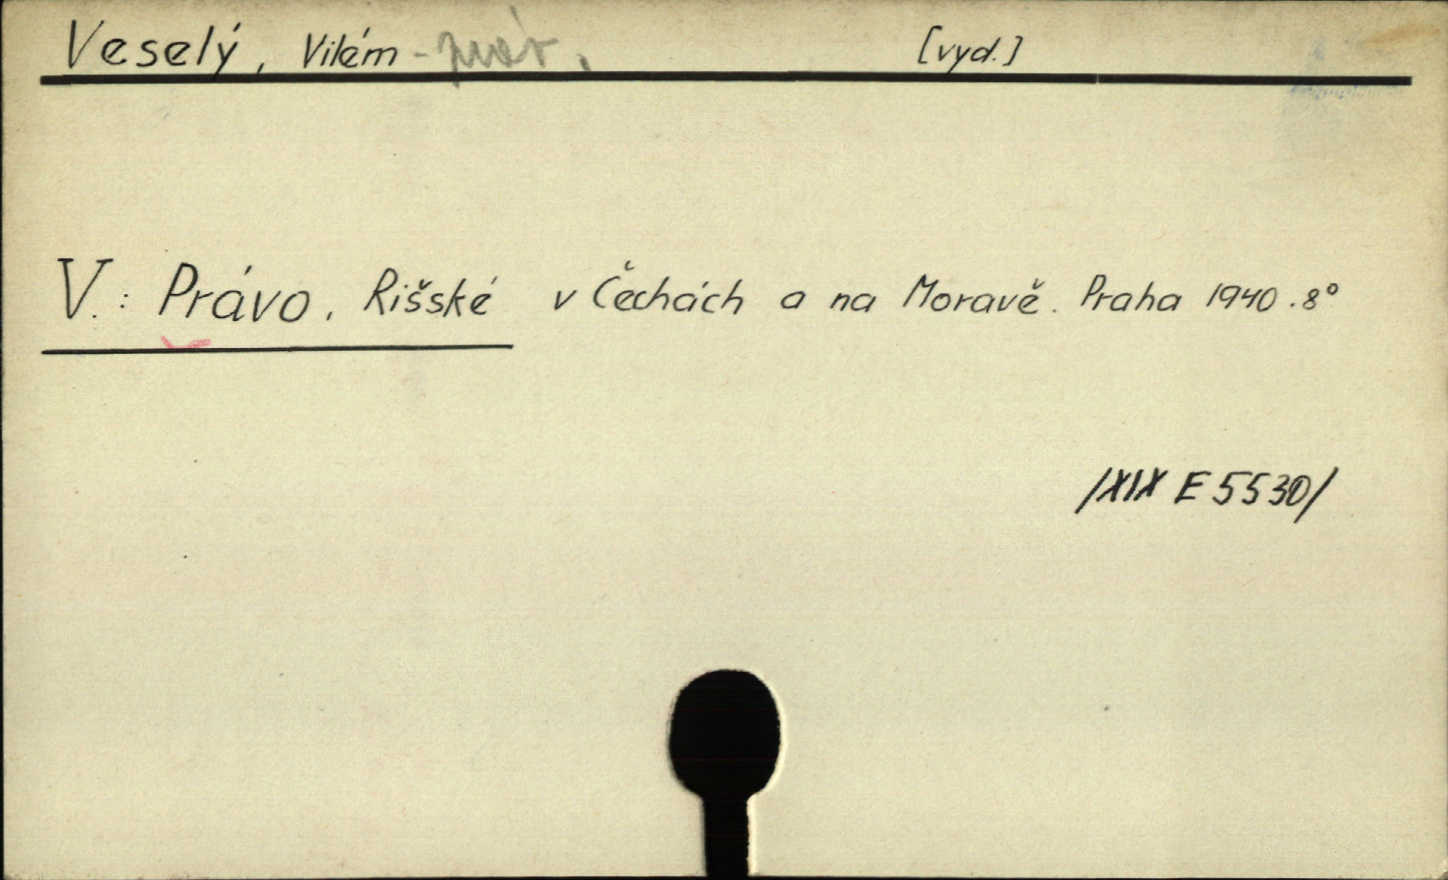 Veselý, Vilém - práv. [vyd.]
V.: Právo, Rišské v Čechách a na Moravě. Praha 1940. 8°
/XIX E 5530/